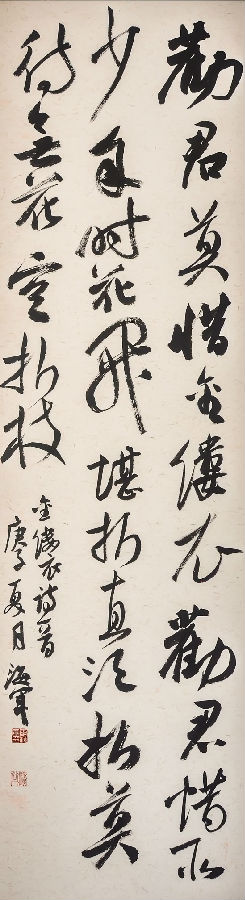 勸君莫惜金縷衣勸君惜取
少年时花開堪折直須折莫
待無花空折枝
金縷衣詩一首
庚子夏月海军